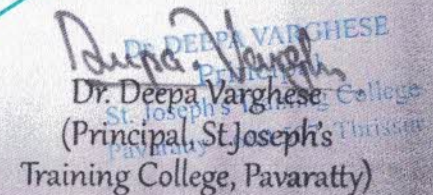 Dr. DEEPA VARGHESE
PRINCIPAL
St. Joseph's Training College
Pavaratty Thrissur
Deepa Varghese
Dr. Deepa Varghese
(Principal, St.Joseph's
Training College, Pavaratty)